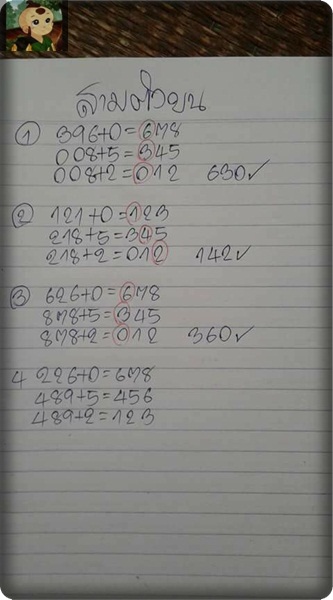 สามตัวบน
① 396+0=678
008+5=345
008+2=012 630✓
② 121+0=123
218+5=345
218+2=012 142✓
③ 626+0=678
878+5=345
878+2=012 360✓
4 226+0=678
489+5=456
489+2=123